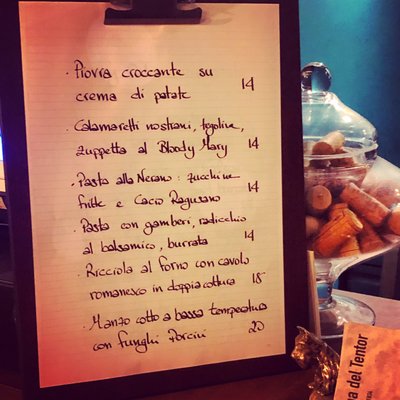 · Piovra croccante su
crema di patate 14
· Calamaretti nostrani, tegoline,
zuppetta al Bloody Mary 14
· Pasta alla Nerano : zucchine
fritte e Cacio Ragusano 14
· Pasta con gamberi, radicchio
al balsamico, burrata 14
· Ricciola al forno con cavolo
romanesco in doppia cottura 18
· Manzo cotto a bassa temperatura
con funghi Porcini 20
a del Tentor